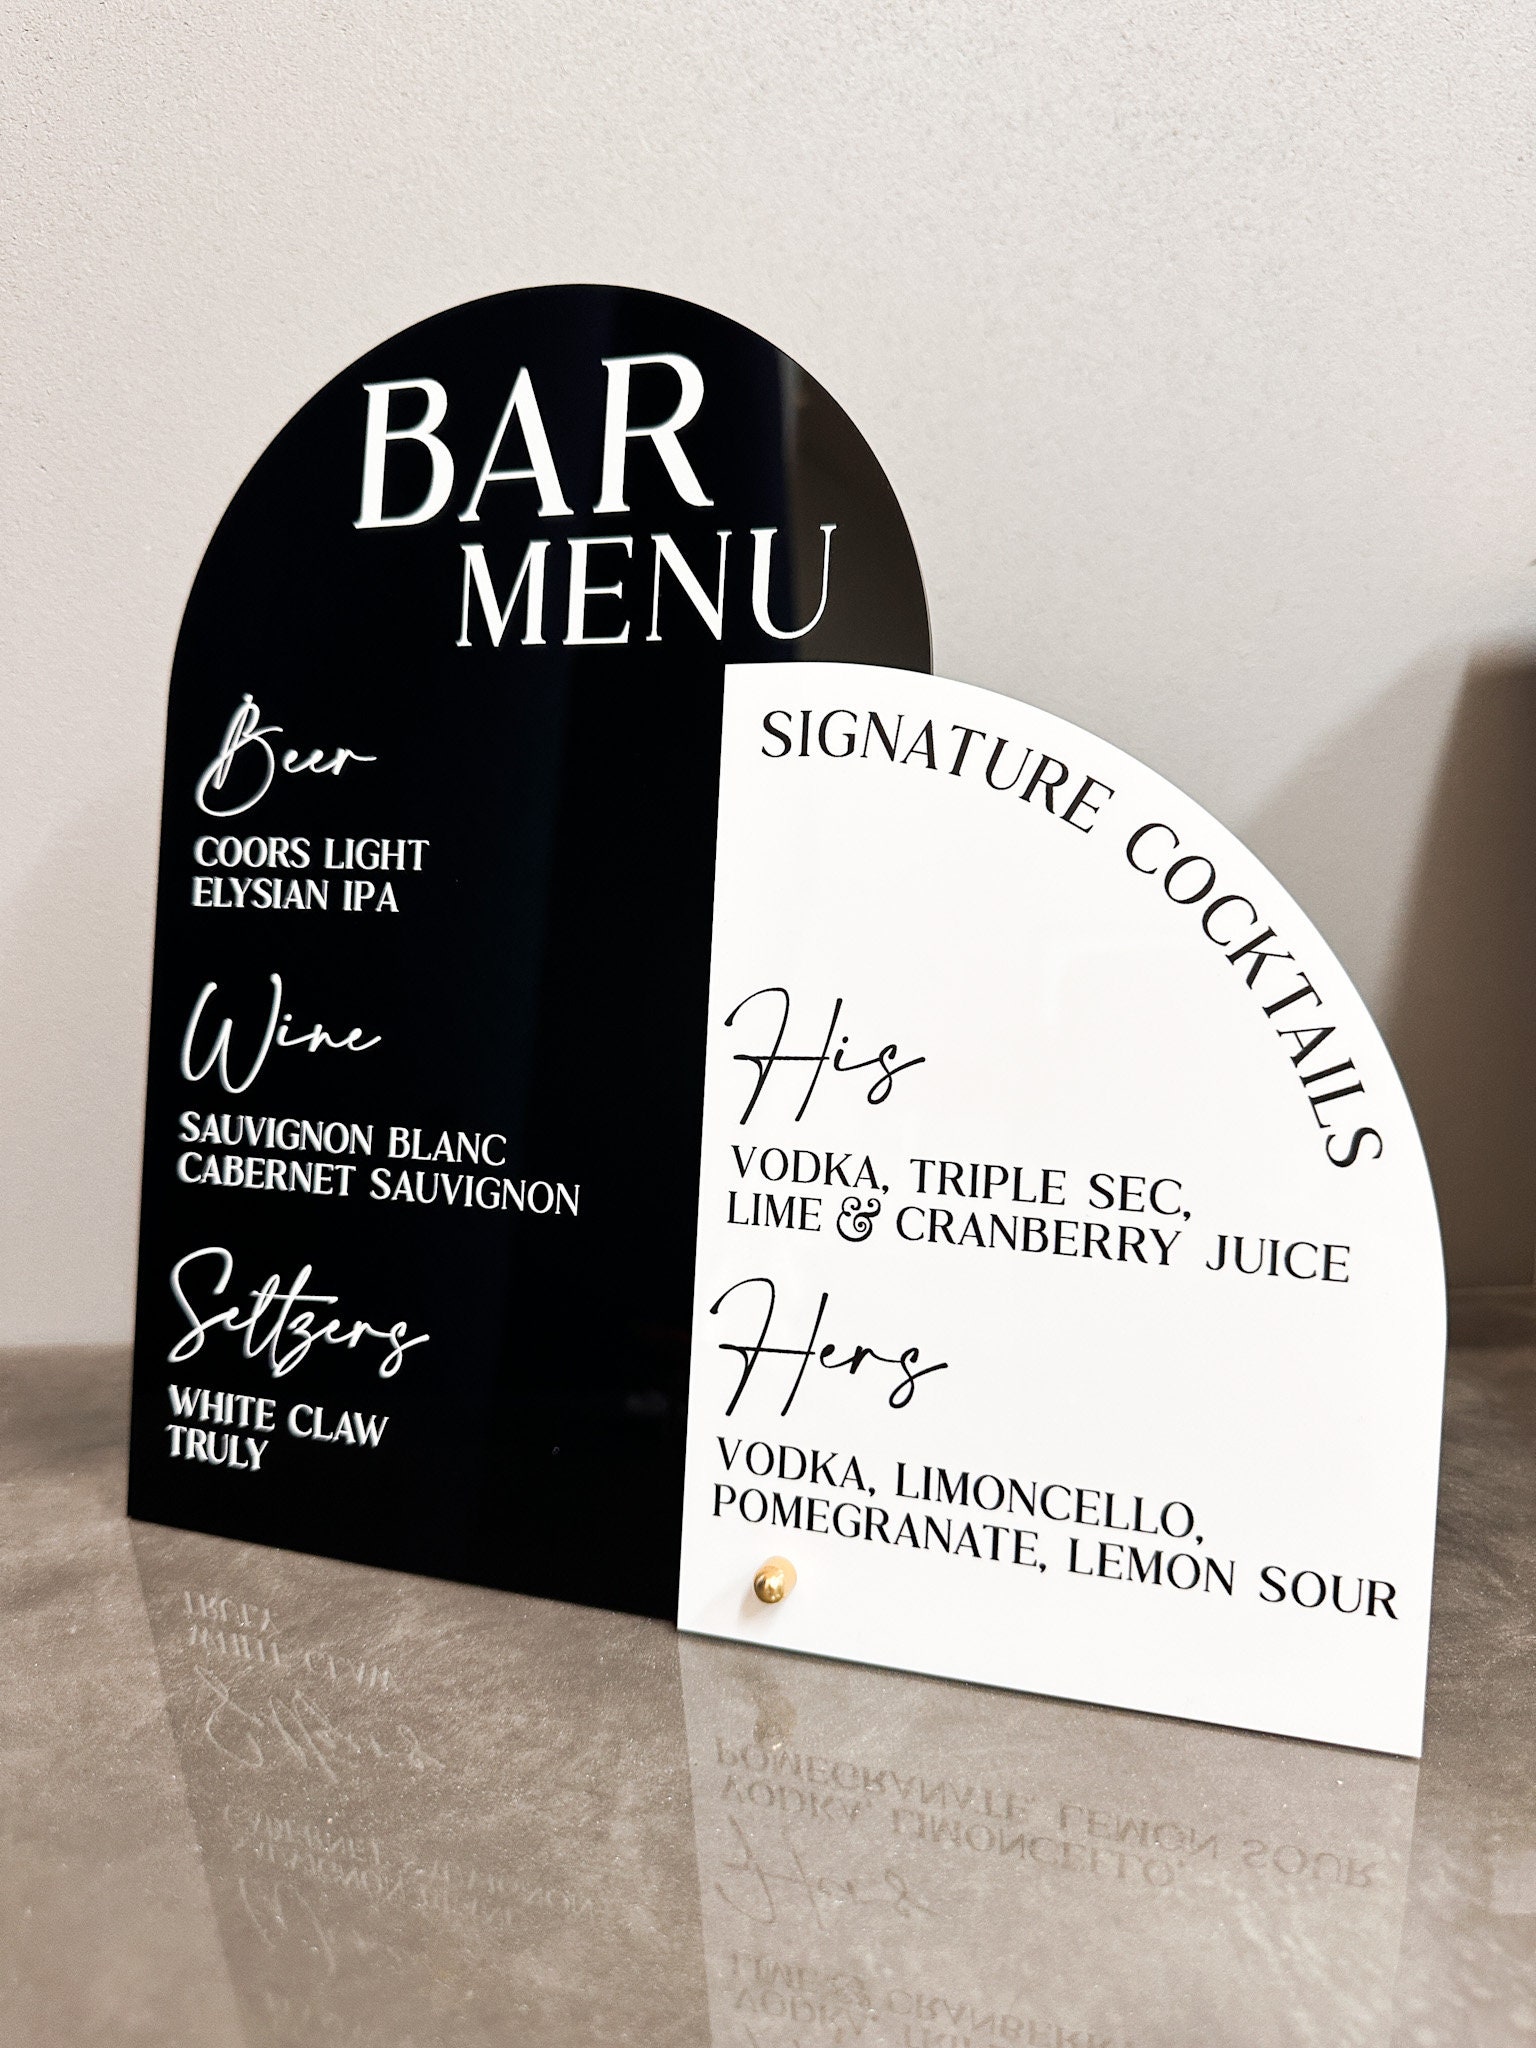 BAR
MENU
Beer
COORS LIGHT
ELYSIAN IPA
Wine
SAUVIGNON BLANC
CABERNET SAUVIGNON
Seltzers
WHITE CLAW
TRULY
SIGNATURE COCKTAILS
His
VODKA, TRIPLE SEC,
LIME & CRANBERRY JUICE
Hers
VODKA, LIMONCELLO,
POMEGRANATE, LEMON SOUR